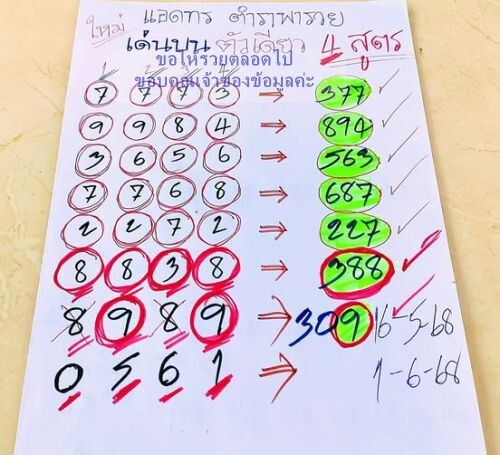 ใหม่ แอดทร ตำราพารวย
เด่นบน ตัวเดียว 4 สูตร
ขอให้รวยตลอดไป
ขอบคุณเจ้าของข้อมูลค่ะ
7 7 7 3 → 377
9 9 8 4 → 894
3 6 5 6 → 563
7 7 6 8 → 687
2 2 7 2 → 227
8 8 3 8 → 388
8 9 8 9 → 309 16-5-68
0 5 6 1 → 1-6-68